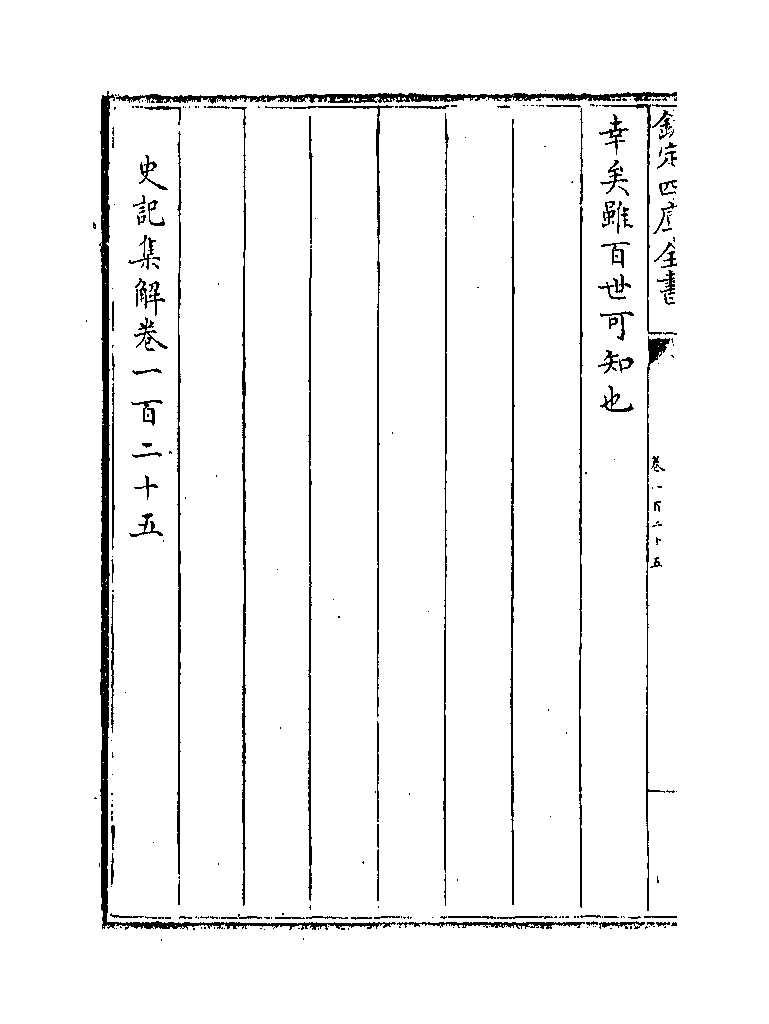 欽定四庫全書
卷一百二十五
幸矣雖百世可知也
史記集解卷一百二十五